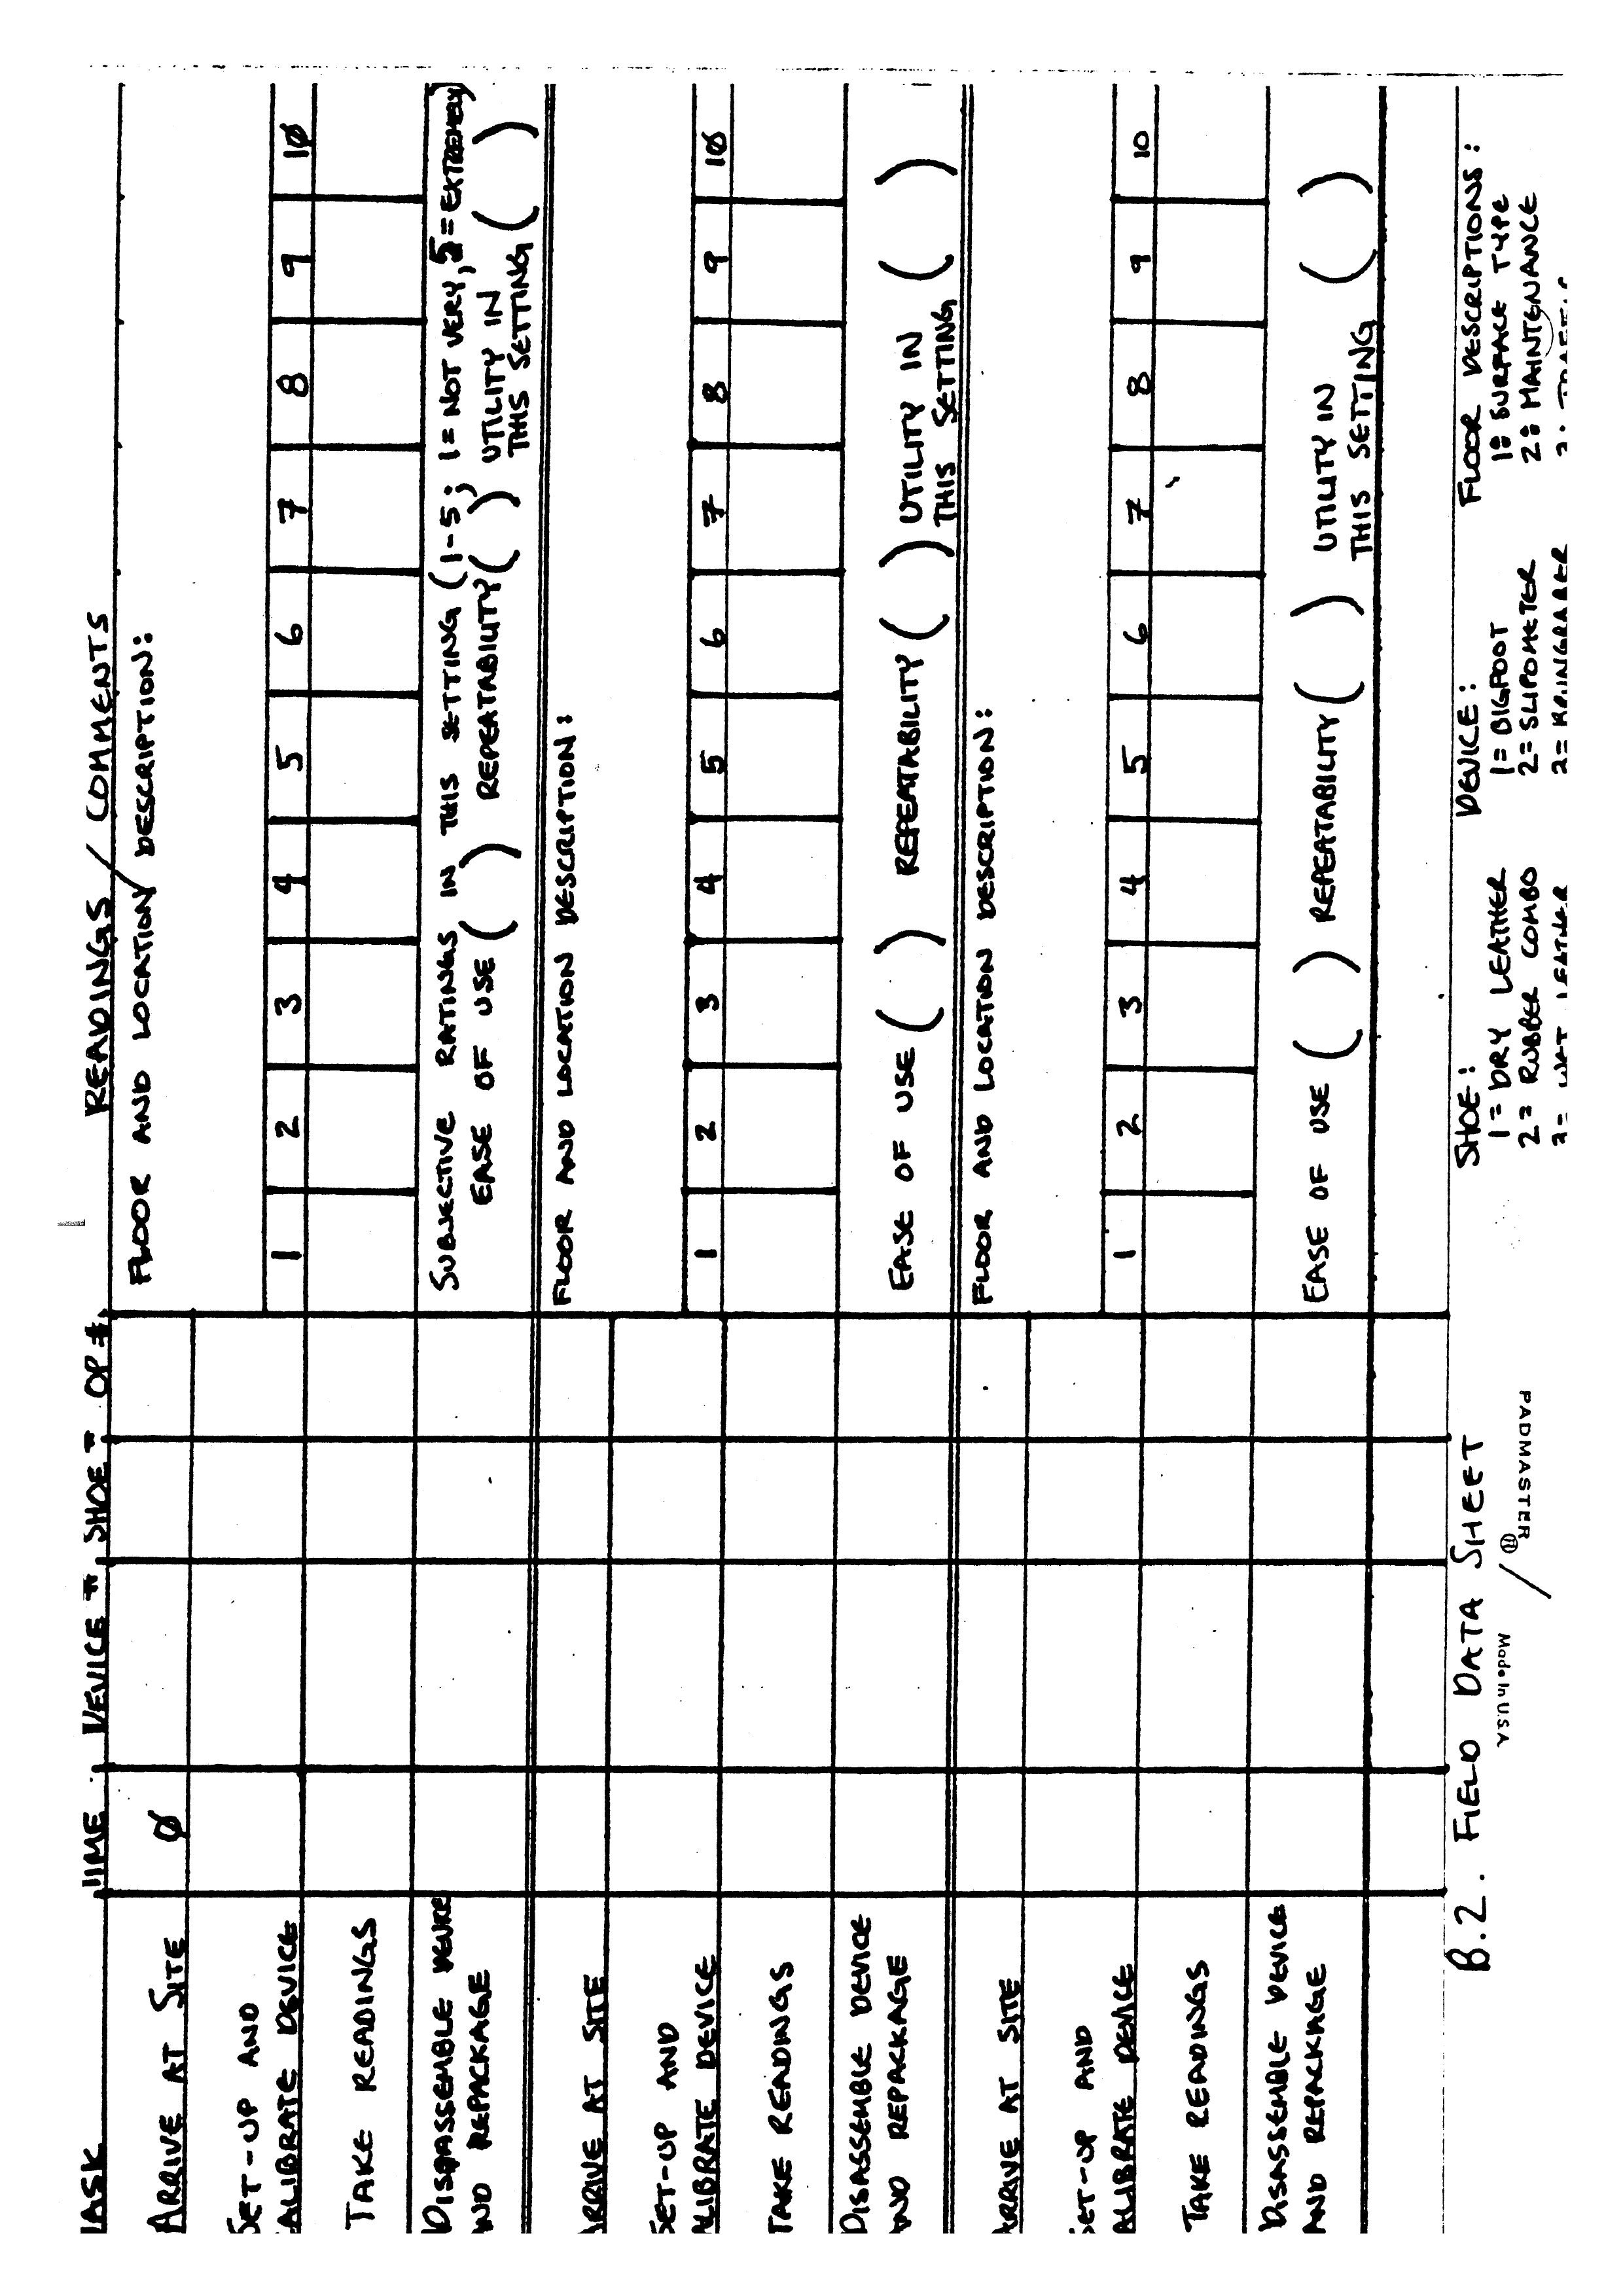 TASK TIME DEVICE # SHOE # OP # READINGS / COMMENTS
ARRIVE AT SITE Ø FLOOR AND LOCATION/DESCRIPTION:
SET-UP AND
ALIBRATE DEVICE 1 2 3 4 5 6 7 8 9 1Ø
TAKE READINGS
DISASSEMBLE DEVICE SUBJECTIVE RATINGS IN THIS SETTING (1-5; 1=NOT VERY, 5=EXTREMELY)
AND REPACKAGE EASE OF USE ( ) REPEATABILITY ( ) UTILITY IN
THIS SETTING ( )
ARRIVE AT SITE FLOOR AND LOCATION DESCRIPTION:
SET-UP AND
ALIBRATE DEVICE 1 2 3 4 5 6 7 8 9 1Ø
TAKE READINGS
DISASSEMBLE DEVICE
AND REPACKAGE EASE OF USE ( ) REPEATABILITY ( ) UTILITY IN
THIS SETTING ( )
ARRIVE AT SITE FLOOR AND LOCATION DESCRIPTION:
SET-UP AND
ALIBRATE DEVICE 1 2 3 4 5 6 7 8 9 10
TAKE READINGS
DISASSEMBLE DEVICE
AND REPACKAGE EASE OF USE ( ) REPEATABILITY ( ) UTILITY IN
THIS SETTING ( )
B.2. FIELD DATA SHEET SHOE: DEVICE: FLOOR DESCRIPTIONS:
1=DRY LEATHER 1=BIGFOOT 1: SURFACE TYPE
2=RUBBER COMBO 2=SLIPOMETER 2: MAINTENANCE
PADMASTER
Made in U.S.A.